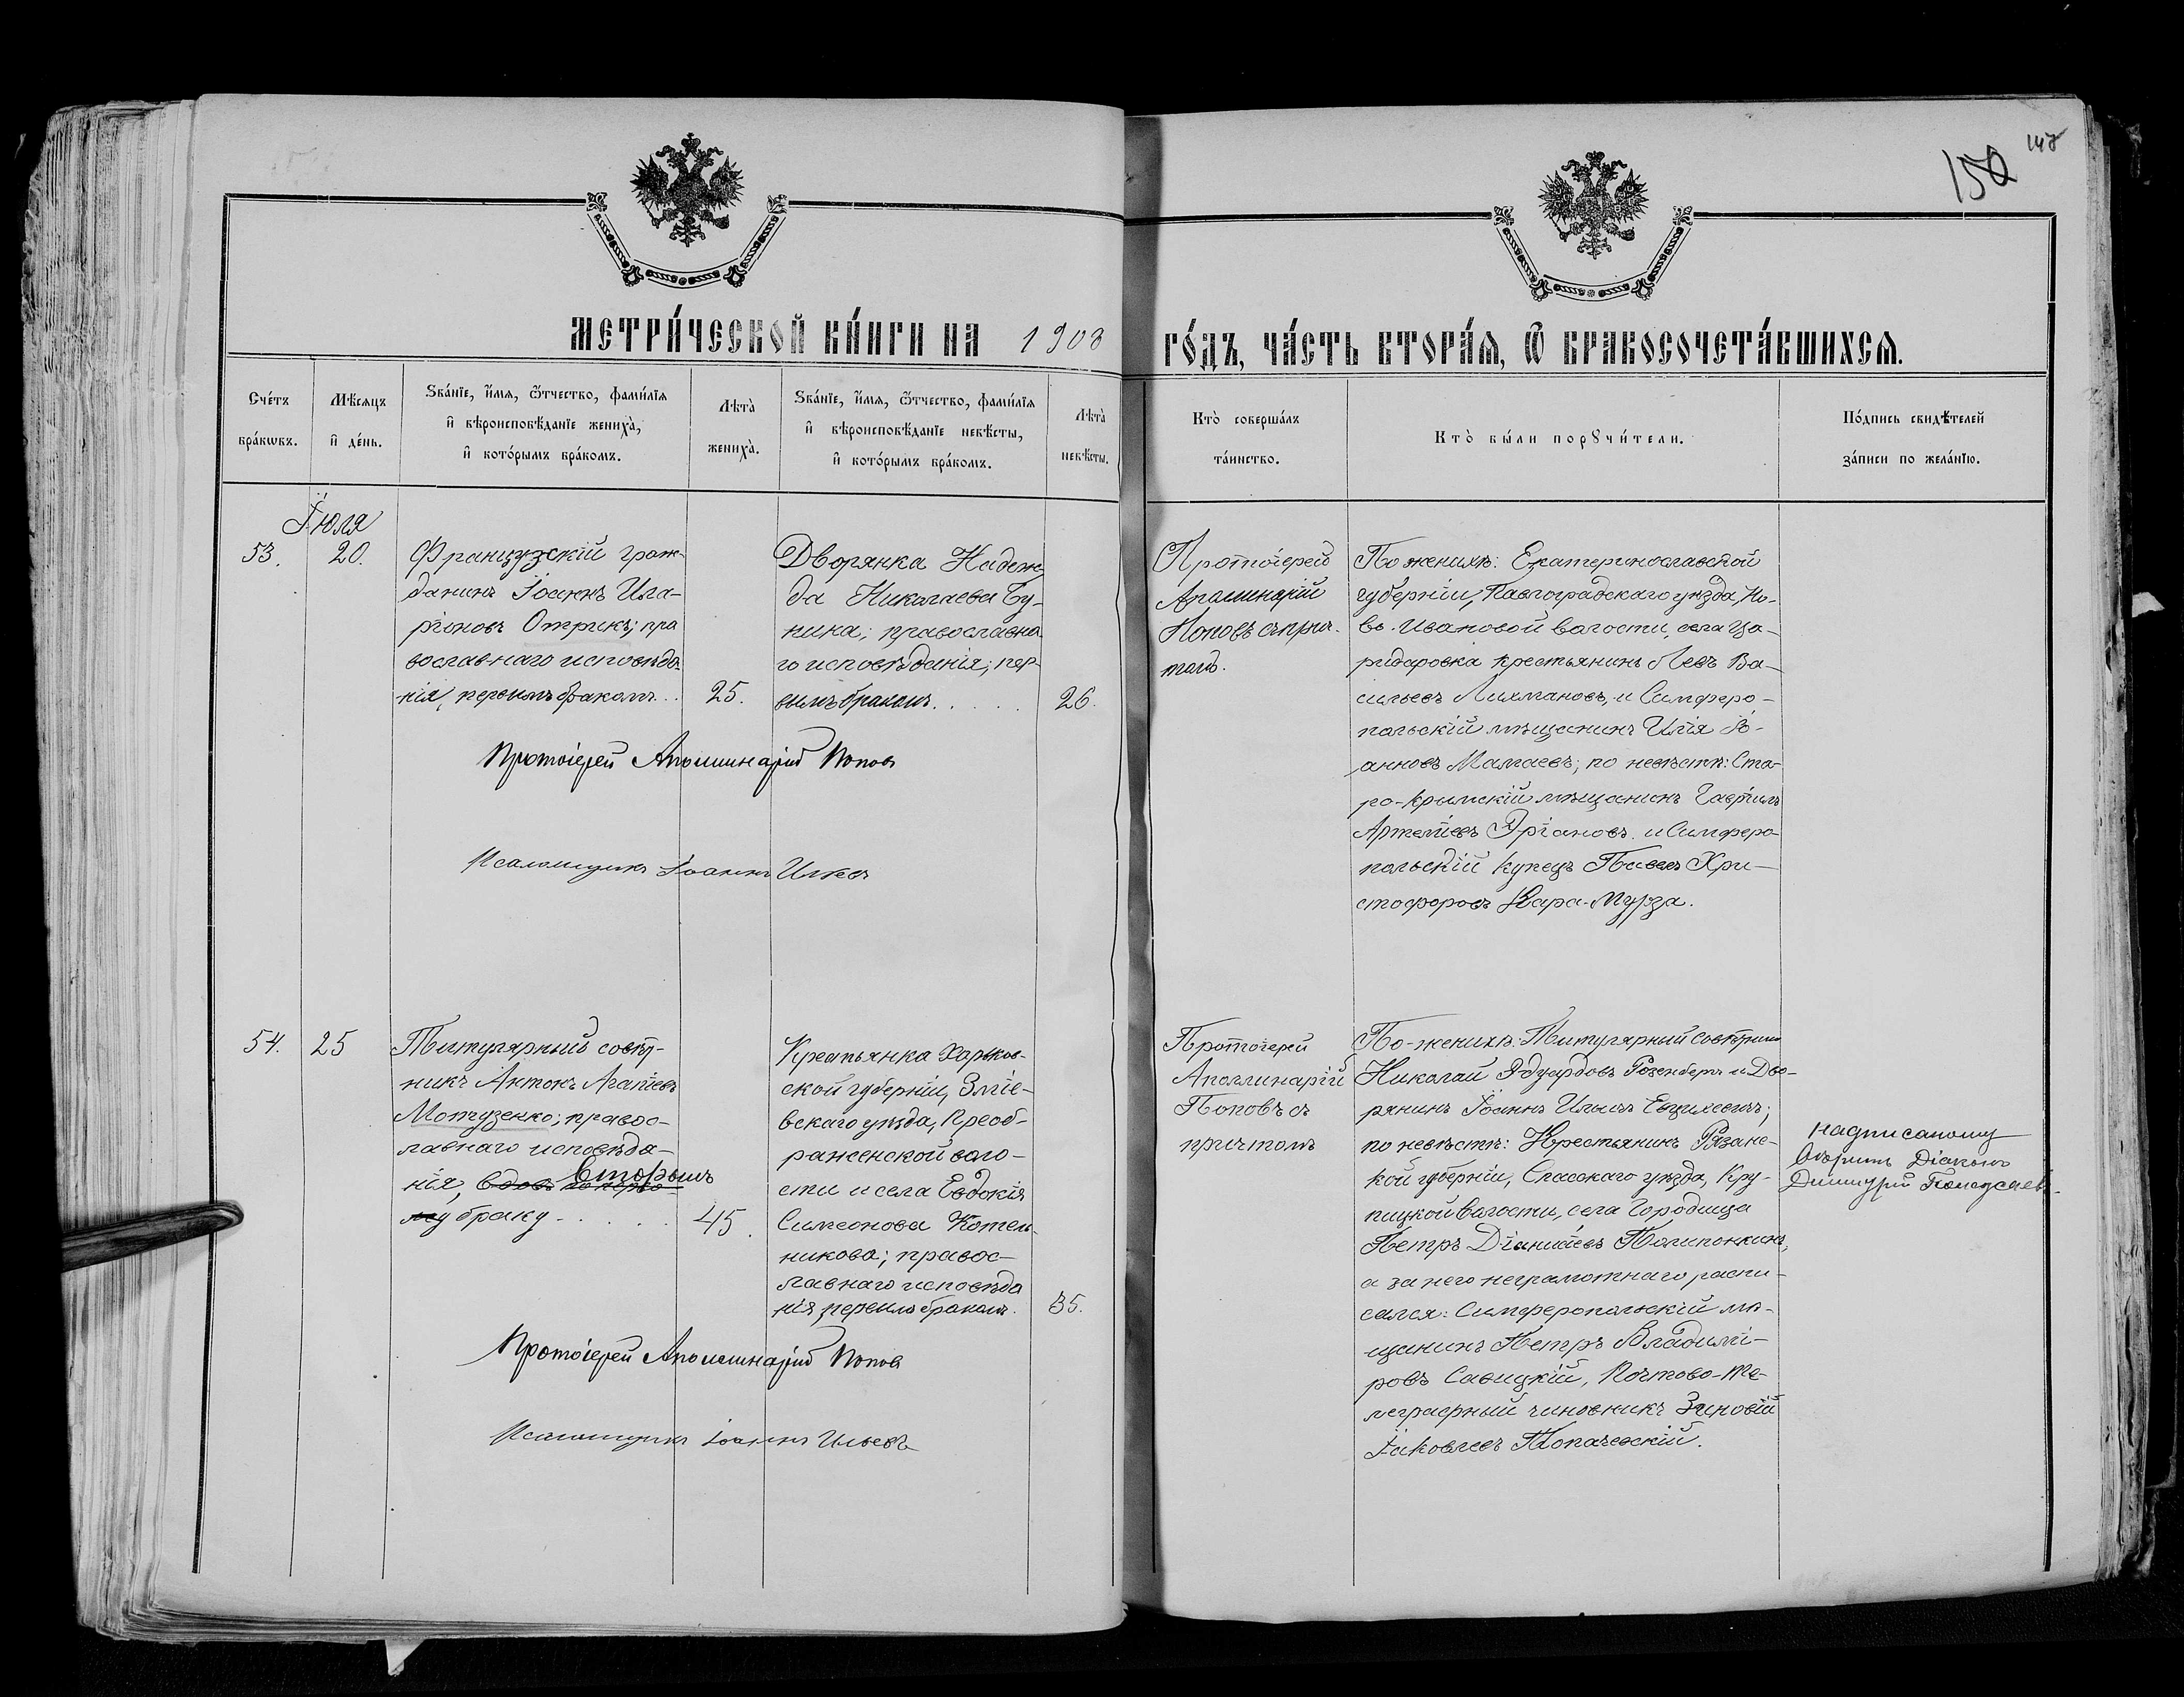 148
150
МЕТРИ́ЧЕСКОЙ КНИ́ГИ НА 1908 ГО́ДЪ, ЧА́СТЬ ВТОРА́Я, Ѿ БРАКОСОЧЕТА́ВШИХСЯ.
Сче́тъ бра́кѡвъ.
Мѣ́сяцъ и де́нь.
Ѕва́нїе, и́мя, ѻ́тчество, фами́лїя
и вѣроисповѣ́данїе жениха̀,
и кото́рымъ бра́комъ.
Лѣта̀ жениха̀.
Ѕва́нїе, и́мя, ѻ́тчество, фами́лїя
и вѣроисповѣ́данїе невѣ́сты,
и кото́рымъ бра́комъ.
Лѣта̀ невѣ́сты.
Кто̀ соверша́лъ
та́инство.
Кто̀ бы́ли порꙋчи́тели.
По́дпись свидѣ́телей
за́писи по жела́нїю.
Іюля
53.
20.
Французскій граж-
данинъ Іоаннъ Ила-
ріоновъ Отрикъ; пра
вославнаго исповѣда-
нія, первымъ бракомъ...
25.
Дворянка Надеж-
да Николаева Бу-
нина; православна
го исповѣданія; пер-
вымъ бракомъ.....
26.
Протоіерей
Аполлинарій
Поповъ съ прич-
томъ.
По женихѣ: Екатеринославской
губерніи, Павлоградскаго уѣзда, Но-
во-Ивановой волости, села Ца-
ридаровка крестьянинъ Левъ Ва-
сильевъ Лихмановъ, и Симферо-
польскій мѣщанинъ Илія Іо-
анновъ Мамаевъ; по невѣстѣ: Ста-
ро-Крымскій мѣщанинъ Гавріилъ
Артеміевъ Эріановъ и Симферо-
польскій купецъ Павелъ Хри-
стофоровъ Кара-Мурза.
Протоіерей Аполлинарій Поповъ
Псаломщикъ Іоаннъ Ильевъ
54.
25
Титулярный совѣт-
никъ Антонъ Агапіевъ
Мотузенко; правос-
лавнаго исповѣда-
нія, вдовъ по перво вторымъ
му браку.....
45.
Крестьянка Харьков-
ской губерніи, Зміе-
вскаго уѣзда, Преоб-
раженской воло-
сти и села Евдокія
Симеонова Котель-
никова; правос-
лавнаго исповѣда
нія, первымъ бракомъ.
35.
Протоіерей
Аполлинарій
Поповъ съ
причтомъ
По-женихѣ: Титулярный совѣтникъ
Николай Эдуардовъ Розенбергъ и Дво-
рянинъ Іоаннъ Ильичъ
по невѣстѣ: Крестьянинъ Рязанс-
кой губерніи, Спасскаго уѣзда, Кру-
пицкой волости, села Городища
Петръ Полипонкинъ,
а за него неграмотнаго распи-
сался: Симферопольскій мѣ-
щанинъ Петръ Владимі-
ровъ Савицкій, Почтово-те-
леграфный чиновникъ Зиновій
Іаковлевъ Топачевскій.
надписанному
вѣрить Діаконъ
Димитрій
Протоіерей Аполлинарій Поповъ
Псаломщикъ Іоаннъ Ильевъ